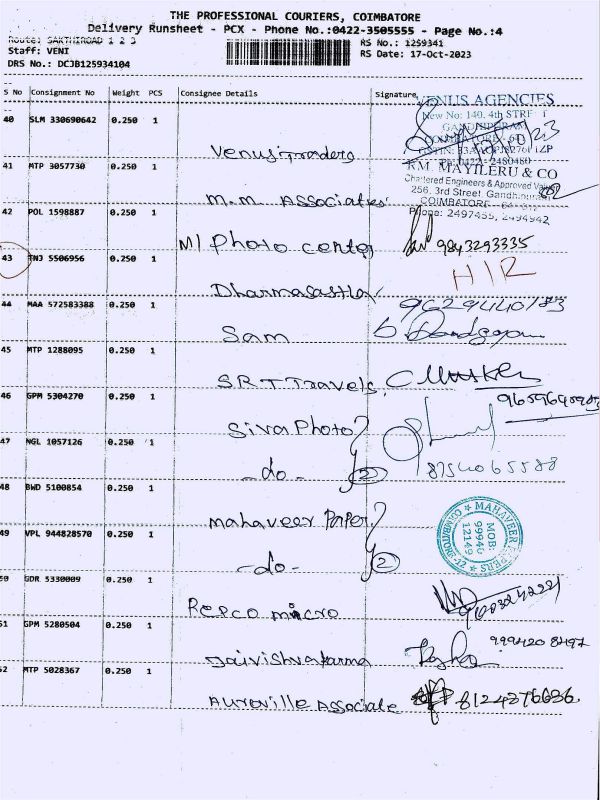 THE PROFESSIONAL COURIERS, COIMBATORE
Delivery Runsheet - PCX - Phone No.:0422-3505555 - Page No.:4
Route: SAKTHIROAD 1 2 3
RS No.: 1259341
Staff: VENI
RS Date: 17-Oct-2023
DRS No.: DCJB125934104
S No Consignment No Weight PCS Consignee Details Signature
VENUS AGENCIES
New No: 140, 4th STRE
GANDHIPURAM
40 SLM 330690642 0.250 1
Venus Traders
Ph:0422-2480480
R.M. MAYILERU & CO
Chartered Engineers & Approved
256, 3rd Street, Gandhipuram
COIMBATORE
Phone: 2497455, 2494942
41 MTP 3057730 0.250 1
M.M. Associates
42 POL 1598887 0.250 1
MI Photo center
9843293335
43 TNJ 5506956 0.250 1
Dharmasastha
H/R
44 MAA 572583388 0.250 1
Sam
9629440183
45 MTP 1288095 0.250 1
S.R.T Travels
46 GPM 5304270 0.250 1
Siva Photo
47 NGL 1057126 0.250 1
-do- 2
8754065588
48 BWD 5100854 0.250 1
Mahaveer Paper
MAHAVEER PAPERS
COIMBATORE-12
MOB:
99940
12149
49 VPL 944828570 0.250 1
-do- 2
50 GDR 5330009 0.250 1
Repco micro
51 GPM 5280504 0.250 1
Jaivishvakarma
999420 8497
52 MTP 5028367 0.250 1
Auroville Associate
8124376636